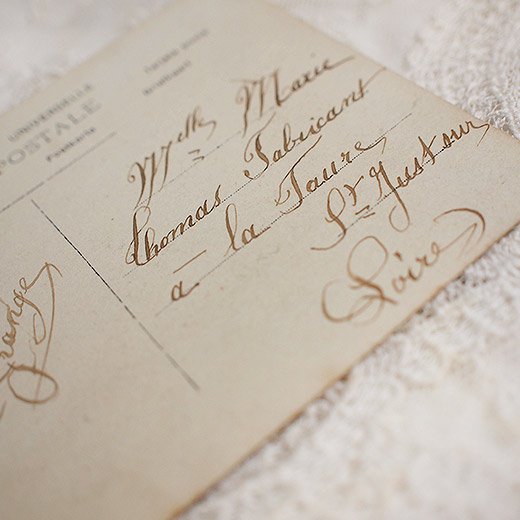 UNIVERSELLE
POSTALE
Postkarte
Mlle Marie
Thomas Fabricant
à la Faure
St Justeur
(Loire)